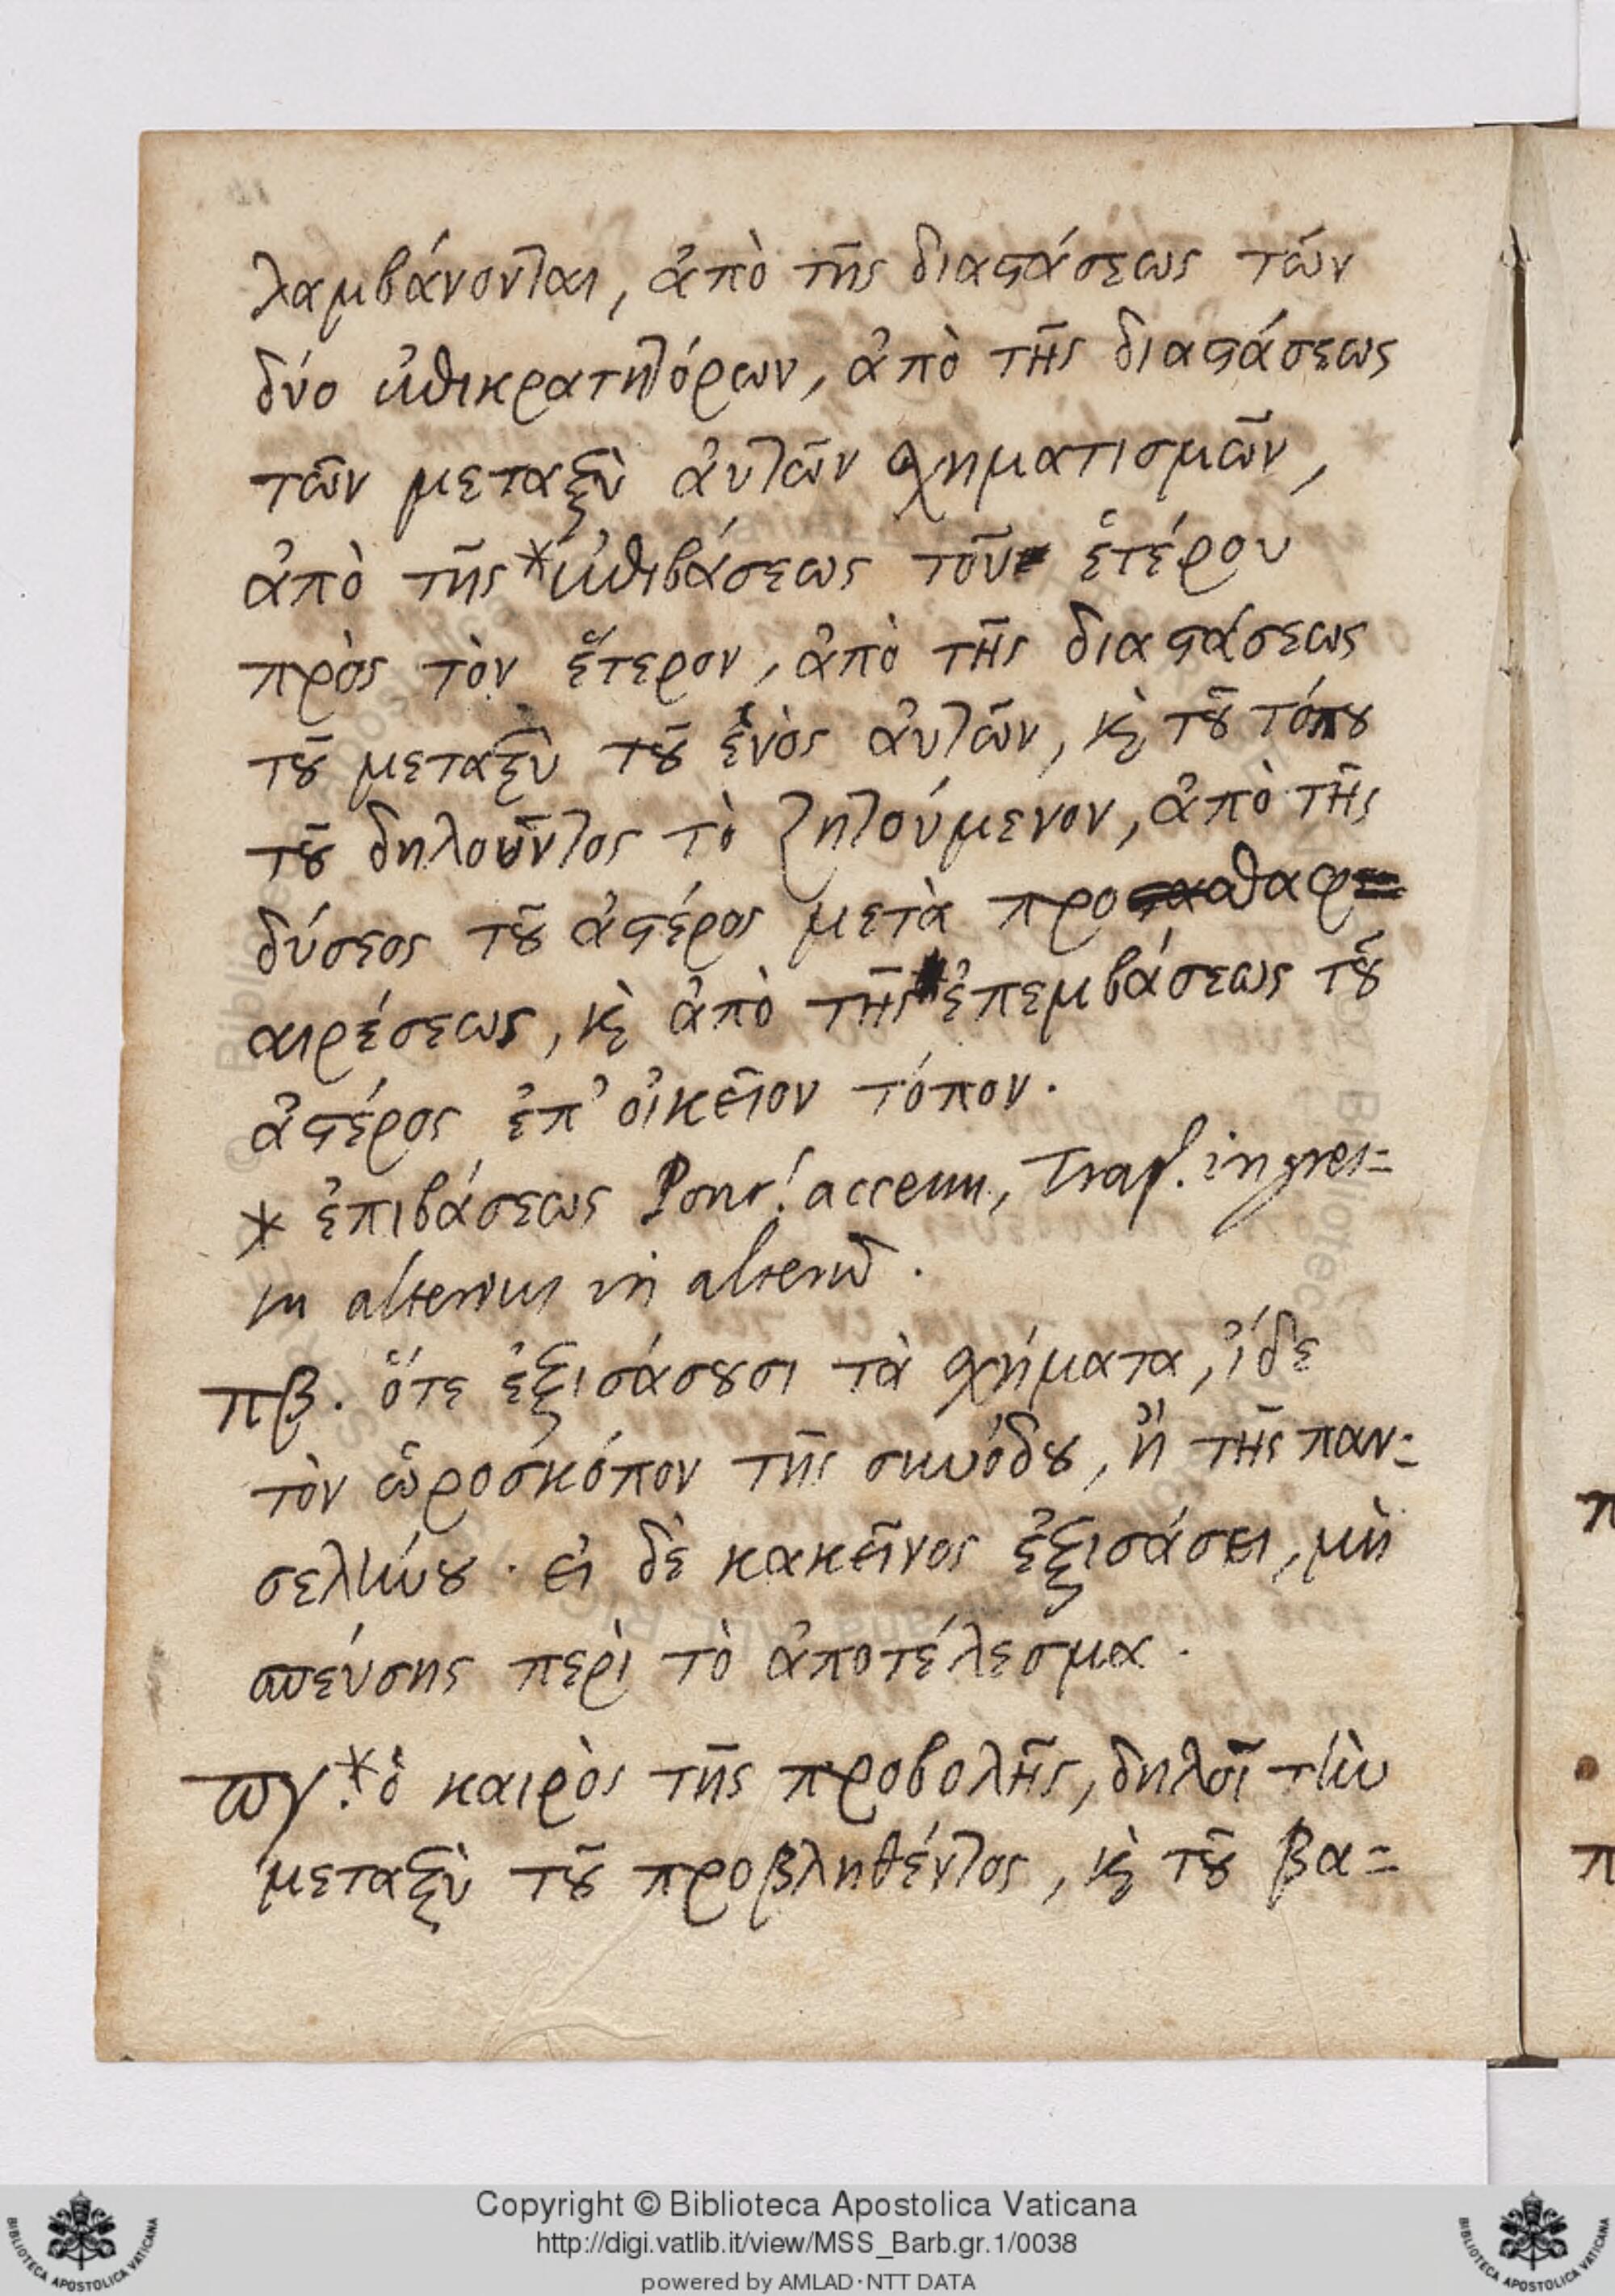 λαμβάνονται, ἀπὸ τῆς διαστάσεως τῶν
δύο ἐπικρατητόρων, ἀπὸ τῆς διαστάσεως
τῶν μεταξὺ ἀυτῶν σχηματισμῶν,
ἀπὸ τῆς *ἐπιβάσεως τοῦ ἑτέρου
πρὸς τὸν ἕτερον, ἀπὸ τῆς διαστάσεως
τοῦ μεταξὺ τοῦ ἑνὸς ἀυτῶν, κὶ τοῦ τόπου
τοῦ δηλοῦντος τὸ ζητούμενον, ἀπὸ τῆς
δύσεος τοῦ ἀστέρος μετὰ προσθαφ
αιρέσεως, κὶ ἀπὸ τῆς ἐπεμβάσεως τοῦ
ἀστέρος ἐπ' οἰκεῖον τόπον.
* ἐπιβάσεως Pont! accessu, Trap. ingres=
su alterius in alterū.
πβ. ὅτε ἐξισάσουσι τὰ σχήματα, ἰδε
τὸν ὡροσκόπον τῆς συνόδου, ἢ τῆς παν=
σελήνου. ει δὲ κακεῖνος ἐξισάσει, μὴ
σπεύσης περὶ τὸ ἀποτέλεσμα.
πγ.* ὁ καιρὸς τῆς προβολῆς, δηλοῖ τὴν
μεταξὺ τοῦ προβληθέντος, κὶ τοῦ βα=
Copyright © Biblioteca Apostolica Vaticana
http://digi.vatlib.it/view/MSS_Barb.gr.1/0038
powered by AMLAD·NTT DATA
BIBLIOTECA APOSTOLICA VATICANA
BIBLIOTECA APOSTOLICA VATICANA